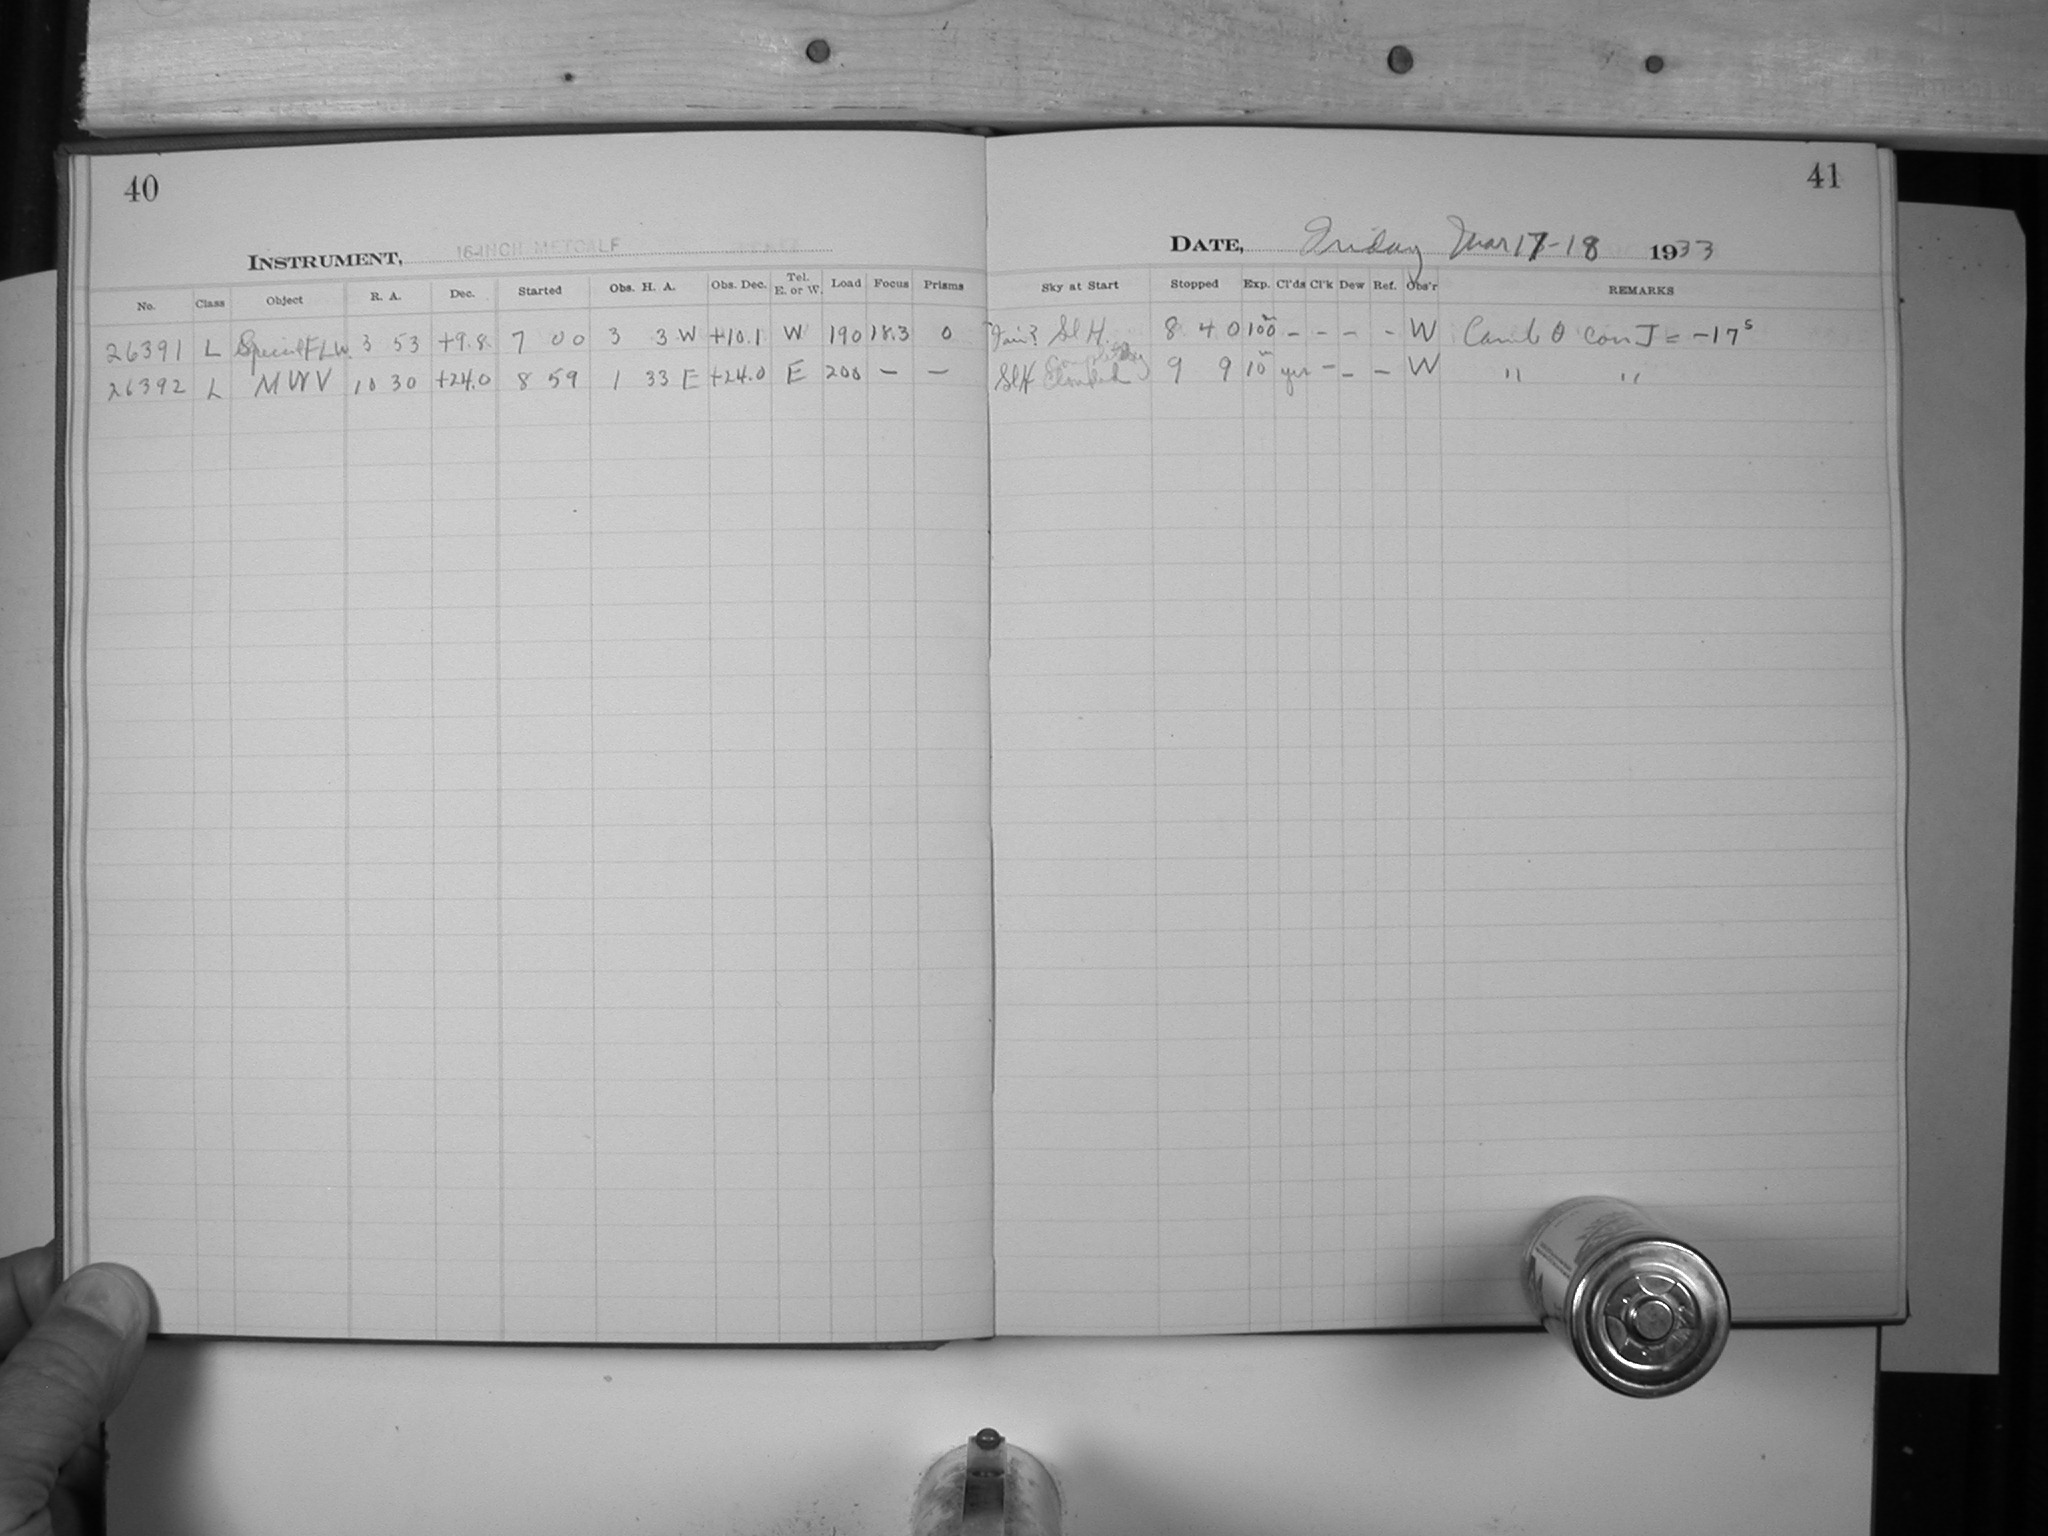 40
41
INSTRUMENT, 16-INCH METCALF
DATE, Friday Mar 17-18 1933
No. Class Object R. A. Dec. Started Obs. H. A. Obs. Dec. Tel. E. or W. Load Focus Prisms Sky at Start Stopped Exp. Cl'ds Cl'k Dew Ref. Obs'r REMARKS
26391 L Special FLW 3 53 +9.8 7 00 3 3 W +10.1 W 190 18.3 0 Fair? Sl H. 8 40 100 - - - - W con J = -17s
26392 L MWV 10 30 +24.0 8 59 1 33 E +24.0 E 200 - - Sl H Completely Clouded 9 9 10m yes - - - W " "